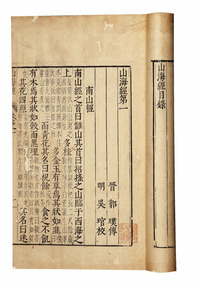 山海經目錄
山海經第一
晉 郭璞傳
明 吳琯校
南山經
南山經之首曰䧿山其首曰招搖之山臨于西海之
上多桂多金玉有草焉其狀如韭
而青花其名曰祝餘食之不飢
有木焉其狀如穀而黑理
其花四照其名曰迷